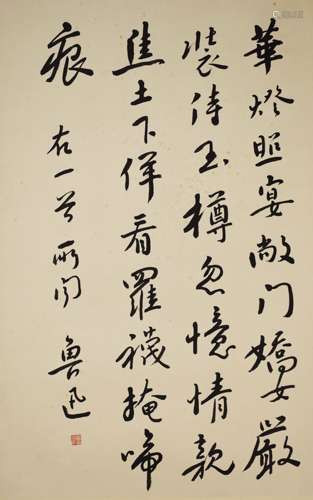 華燈照宴敞門嬌女嚴
裝侍玉樽忽憶情親
焦土下佯看羅襪掩啼
痕 右一首 所聞 魯迅